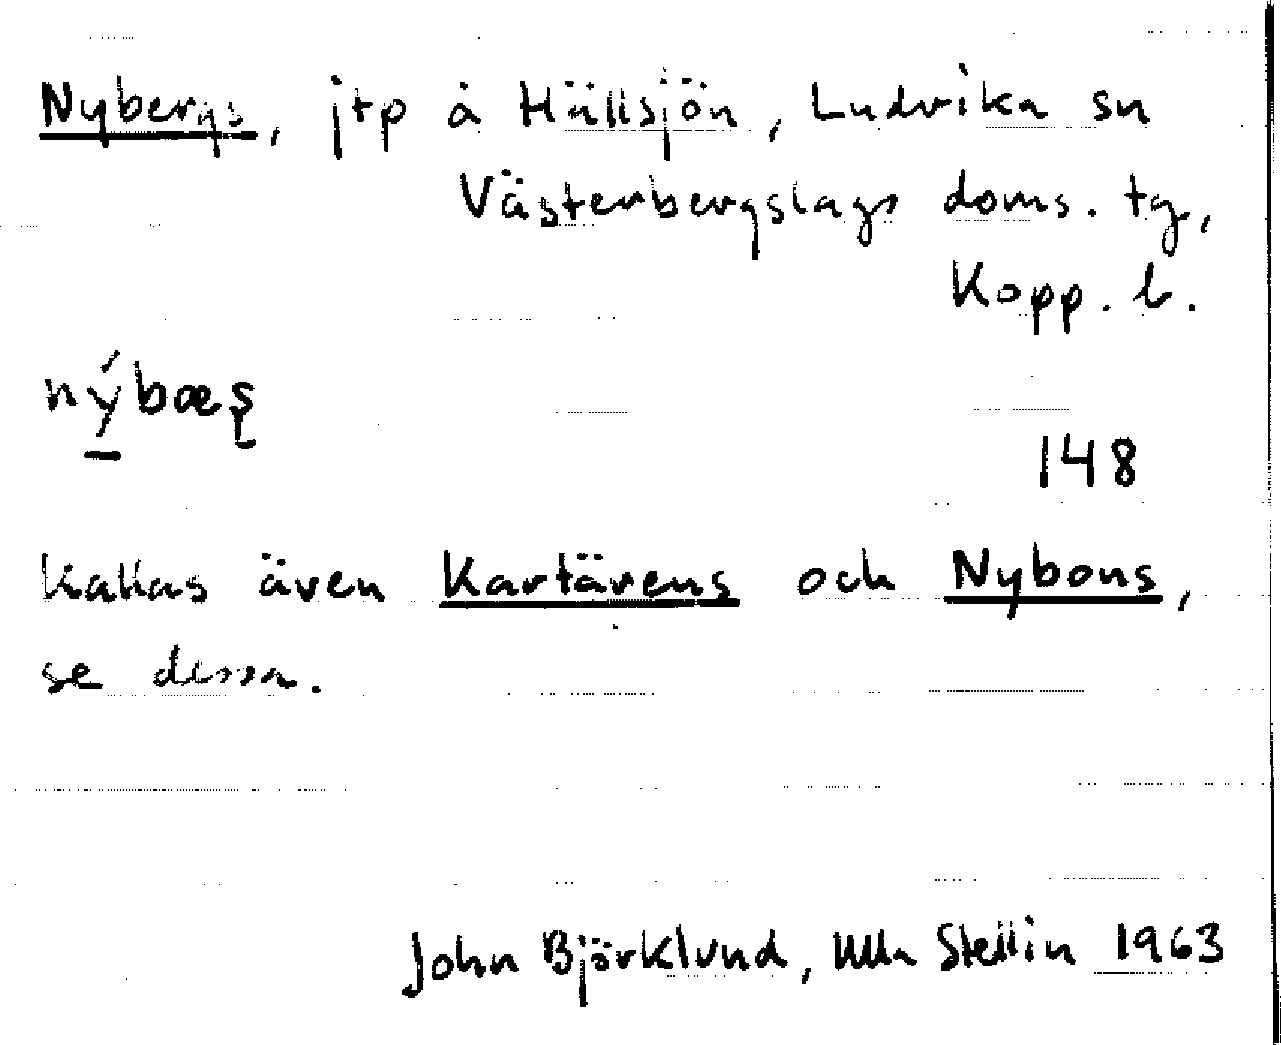 Nybergs, jtp å Hällsjön, Ludvika sn
Västerbergslags doms. tg,
Kopp. l.
nýbæș
148
Kallas även Kartärens och Nybons,
se dessa.
John Björklund, Ulla Stellin 1963